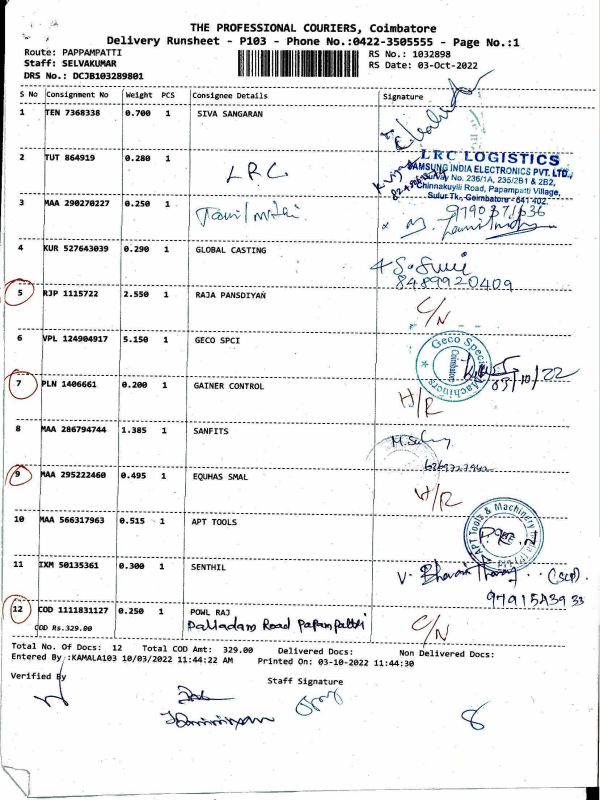 THE PROFESSIONAL COURIERS, Coimbatore
Delivery Runsheet - P103 - Phone No.:0422-3505555 - Page No.:1
Route: PAPPAMPATTI RS No.: 1032898
Staff: SELVAKUMAR RS Date: 03-Oct-2022
DRS No.: DCJB103289801
S No Consignment No Weight PCS Consignee Details Signature
1 TEN 7368338 0.700 1 SIVA SANGARAN
2 TUT 864919 0.280 1 LRC
LRC LOGISTICS
SAMSUNG INDIA ELECTRONICS PVT. LTD.,
Survay No. 236/1A, 235/2B1 & 2B2,
Chinnakuyili Road, Papampatti Village,
Sulur Tk., Coimbatore - 641 402.
3 MAA 290270227 0.250 1
4 KUR 527643039 0.290 1 GLOBAL CASTING
8489920409
5 RJP 1115722 2.550 1 RAJA PANSDIYAN C/N
6 VPL 124904917 5.150 1 GECO SPCI
Geco Special Machiners Coimbatore
03/10/22
7 PLN 1406661 0.200 1 GAINER CONTROL H/R
8 MAA 286794744 1.385 1 SANFITS
9 MAA 295222460 0.495 1 EQUHAS SMAL H/R
10 MAA 566317963 0.515 1 APT TOOLS
APT Tools & Machinery
11 IXM 50135361 0.300 1 SENTHIL
12 COD 1111831127 0.250 1 POWL RAJ
COD Rs.329.00 Palladam Road Papampatti C/N
Total No. Of Docs: 12 Total COD Amt: 329.00 Delivered Docs: Non Delivered Docs:
Entered By :KAMALA103 10/03/2022 11:44:22 AM Printed On: 03-10-2022 11:44:30
Verified By Staff Signature
8